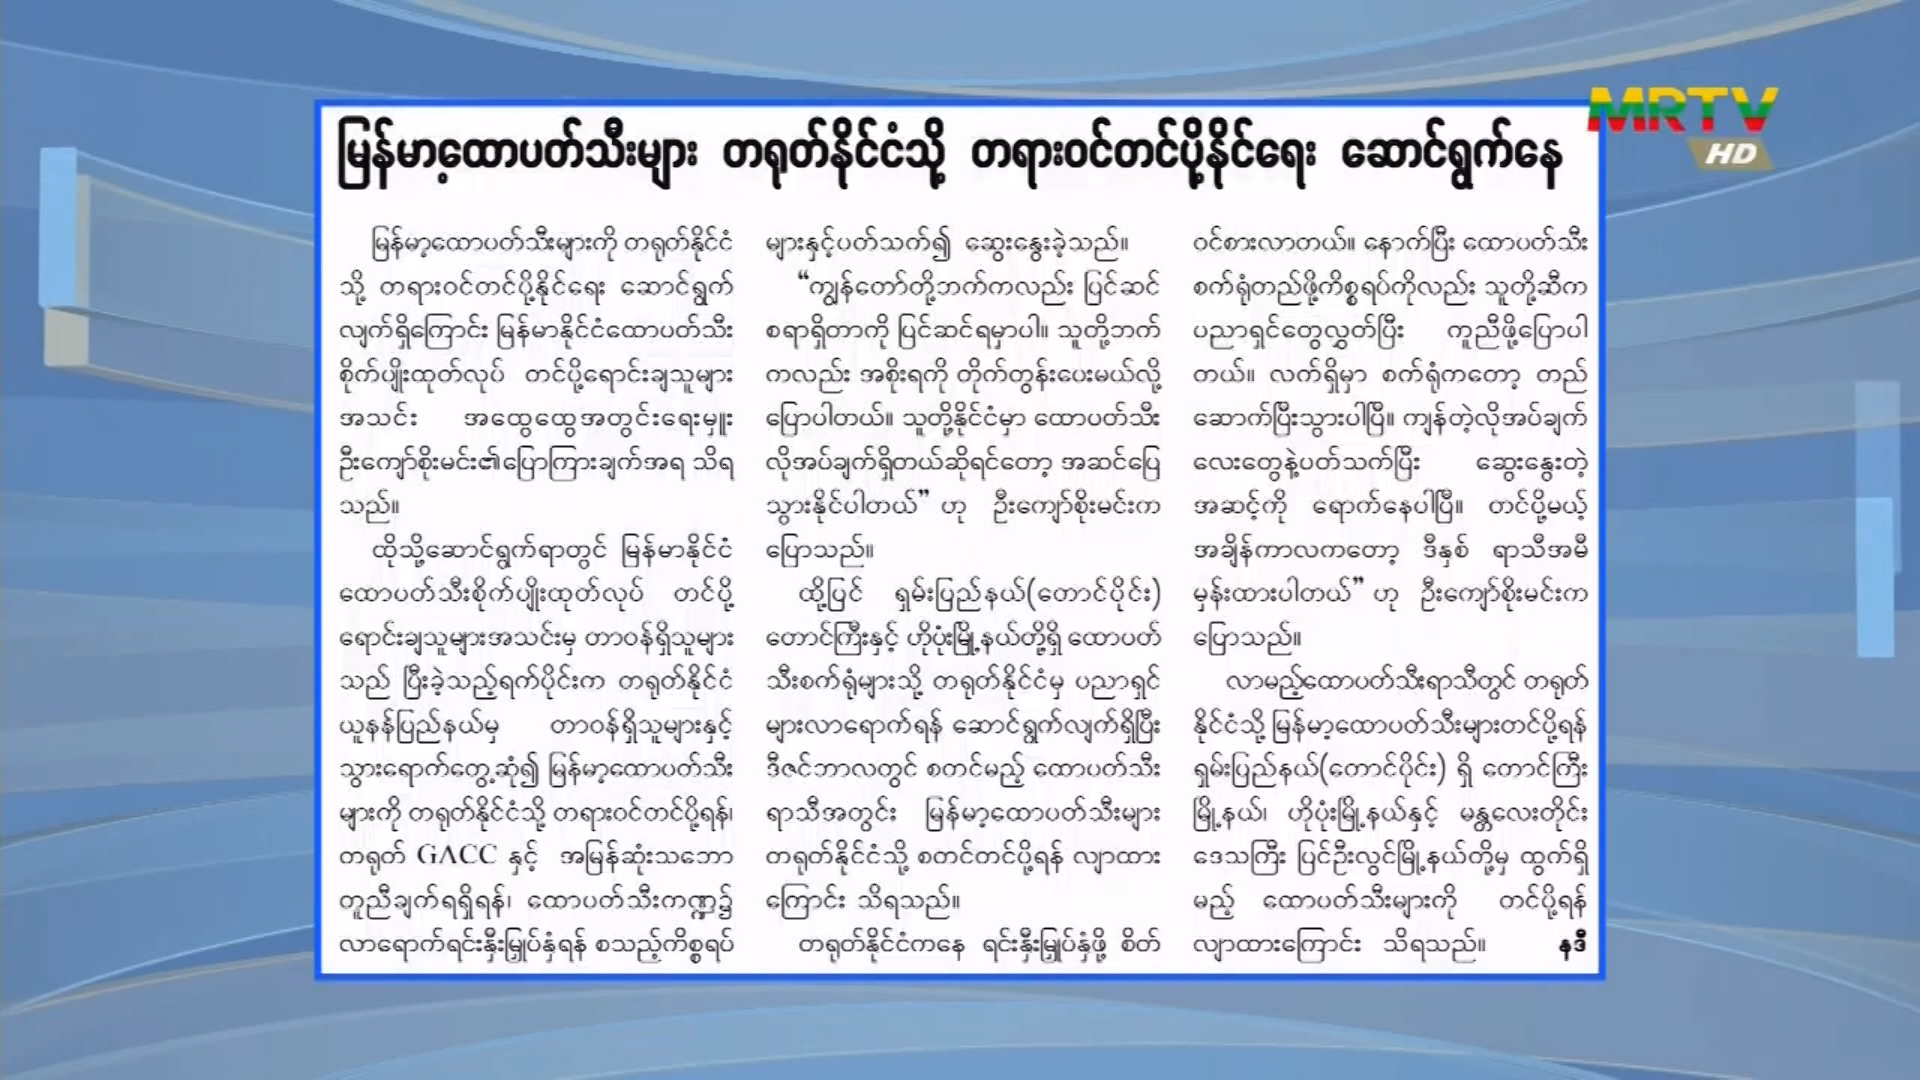 မြန်မာ့ထောပတ်သီးများ တရုတ်နိုင်ငံသို့ တရားဝင်တင်ပို့နိုင်ရေး ဆောင်ရွက်နေ
MRTV
HD
မြန်မာ့ထောပတ်သီးများကို တရုတ်နိုင်ငံ
သို့ တရားဝင်တင်ပို့နိုင်ရေး ဆောင်ရွက်
လျက်ရှိကြောင်း မြန်မာနိုင်ငံထောပတ်သီး
စိုက်ပျိုးထုတ်လုပ် တင်ပို့ရောင်းချသူများ
အသင်း အထွေထွေအတွင်းရေးမှူး
ဦးကျော်စိုးမင်း၏ပြောကြားချက်အရ သိရ
သည်။
ထိုသို့ဆောင်ရွက်ရာတွင် မြန်မာနိုင်ငံ
ထောပတ်သီးစိုက်ပျိုးထုတ်လုပ် တင်ပို့
ရောင်းချသူများအသင်းမှ တာဝန်ရှိသူများ
သည် ပြီးခဲ့သည့်ရက်ပိုင်းက တရုတ်နိုင်ငံ
ယူနန်ပြည်နယ်မှ တာဝန်ရှိသူများနှင့်
သွားရောက်တွေ့ဆုံ၍ မြန်မာ့ထောပတ်သီး
များကို တရုတ်နိုင်ငံသို့ တရားဝင်တင်ပို့ရန်၊
တရုတ် GACC နှင့် အမြန်ဆုံးသဘော
တူညီချက်ရရှိရန်၊ ထောပတ်သီးကဏ္ဍ၌
လာရောက်ရင်းနှီးမြှုပ်နှံရန် စသည့်ကိစ္စရပ်
များနှင့်ပတ်သက်၍ ဆွေးနွေးခဲ့သည်။
“ကျွန်တော်တို့ဘက်ကလည်း ပြင်ဆင်
စရာရှိတာကို ပြင်ဆင်ရမှာပါ။ သူတို့ဘက်
ကလည်း အစိုးရကို တိုက်တွန်းပေးမယ်လို့
ပြောပါတယ်။ သူတို့နိုင်ငံမှာ ထောပတ်သီး
လိုအပ်ချက်ရှိတယ်ဆိုရင်တော့ အဆင်ပြေ
သွားနိုင်ပါတယ်” ဟု ဦးကျော်စိုးမင်းက
ပြောသည်။
ထို့ပြင် ရှမ်းပြည်နယ်(တောင်ပိုင်း)
တောင်ကြီးနှင့် ဟိုပုံးမြို့နယ်တို့ရှိ ထောပတ်
သီးစက်ရုံများသို့ တရုတ်နိုင်ငံမှ ပညာရှင်
များလာရောက်ရန် ဆောင်ရွက်လျက်ရှိပြီး
ဒီဇင်ဘာလတွင် စတင်မည့် ထောပတ်သီး
ရာသီအတွင်း မြန်မာ့ထောပတ်သီးများ
တရုတ်နိုင်ငံသို့ စတင်တင်ပို့ရန် လျာထား
ကြောင်း သိရသည်။
တရုတ်နိုင်ငံကနေ ရင်းနှီးမြှုပ်နှံဖို့ စိတ်
ဝင်စားလာတယ်။ နောက်ပြီး ထောပတ်သီး
စက်ရုံတည်ဖို့ကိစ္စရပ်ကိုလည်း သူတို့ဆီက
ပညာရှင်တွေလွှတ်ပြီး ကူညီဖို့ပြောပါ
တယ်။ လက်ရှိမှာ စက်ရုံကတော့ တည်
ဆောက်ပြီးသွားပါပြီ။ ကျန်တဲ့လိုအပ်ချက်
လေးတွေနဲ့ပတ်သက်ပြီး ဆွေးနွေးတဲ့
အဆင့်ကို ရောက်နေပါပြီ။ တင်ပို့မယ့်
အချိန်ကာလကတော့ ဒီနှစ် ရာသီအမီ
မှန်းထားပါတယ်” ဟု ဦးကျော်စိုးမင်းက
ပြောသည်။
လာမည့်ထောပတ်သီးရာသီတွင် တရုတ်
နိုင်ငံသို့ မြန်မာ့ထောပတ်သီးများတင်ပို့ရန်
ရှမ်းပြည်နယ်(တောင်ပိုင်း) ရှိ တောင်ကြီး
မြို့နယ်၊ ဟိုပုံးမြို့နယ်နှင့် မန္တလေးတိုင်း
ဒေသကြီး ပြင်ဦးလွင်မြို့နယ်တို့မှ ထွက်ရှိ
မည့် ထောပတ်သီးများကို တင်ပို့ရန်
လျာထားကြောင်း သိရသည်။ နဒီ